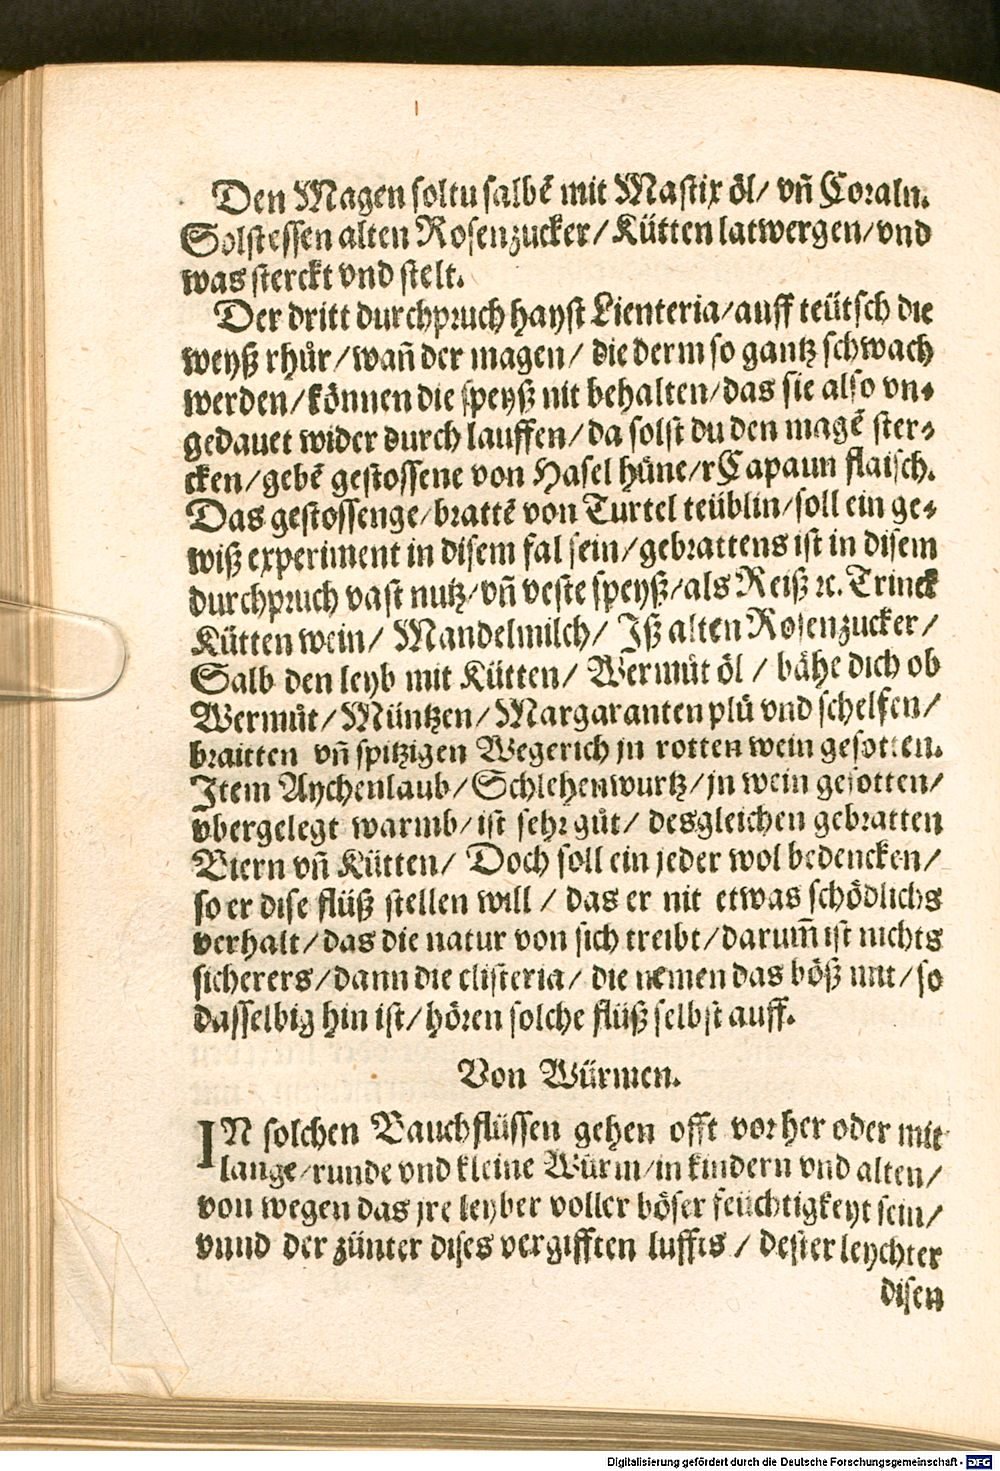 Den Magen soltu salbē mit Mastix öl/ vñ Coraln.
Solst essen alten Rosenzucker/ Kütten latwergen/ vnd
was sterckt vnd stelt.
Der dritt durchpruch hayst Lienteria/ auff teütsch die
weyß rhůr/ wañ der magen/ die derm so gantz schwach
werden/ können die speyß nit behalten/ das sie also vn⸗
gedauet wider durch lauffen/ da solst du den magē ster⸗
cken/ gebē gestossene von Hasel hüne/r Capaun flaisch.
Das gestossenge/ brattē von Turtel teüblin/ soll ein ge⸗
wiß experiment in disem fal sein/ gebrattens ist in disem
durchpruch vast nutz/ vñ veste speyß/ als Reiß ⁊c. Trinck
Kütten wein/ Mandelmilch/ Iß alten Rosenzucker/
Salb den leyb mit Kütten/ Wermůt öl / bähe dich ob
Wermůt/ Müntzen/ Margaranten plů vnd schelfen/
braitten vñ spitzigen Wegerich jn rotten wein gesotten.
Item Aychenlaub/ Schlehenwurtz/ jn wein gesotten/
vbergelegt warmb/ ist sehr gůt/ desgleichen gebratten
Biern vñ Kütten/ Doch soll ein jeder wol bedencken/
so er dise flüß stellen will / das er nit etwas schödlichs
verhalt/ das die natur von sich treibt/ darum̄ ist nichts
sicherers/ dann die clisteria/ die nemen das böß mit/ so
dasselbig hin ist/ hören solche flüß selbst auff.
Von Würmen.
IN solchen Bauchflüssen gehen offt vor her oder mit
lange/ runde vnd kleine Würm/ in kindern vnd alten/
von wegen das jre leyber voller böser feüchtigkeyt sein/
vnnd der zünter dises vergifften luffts / dester leychter
disen
Digitalisierung gefördert durch die Deutsche Forschungsgemeinschaft - DFG